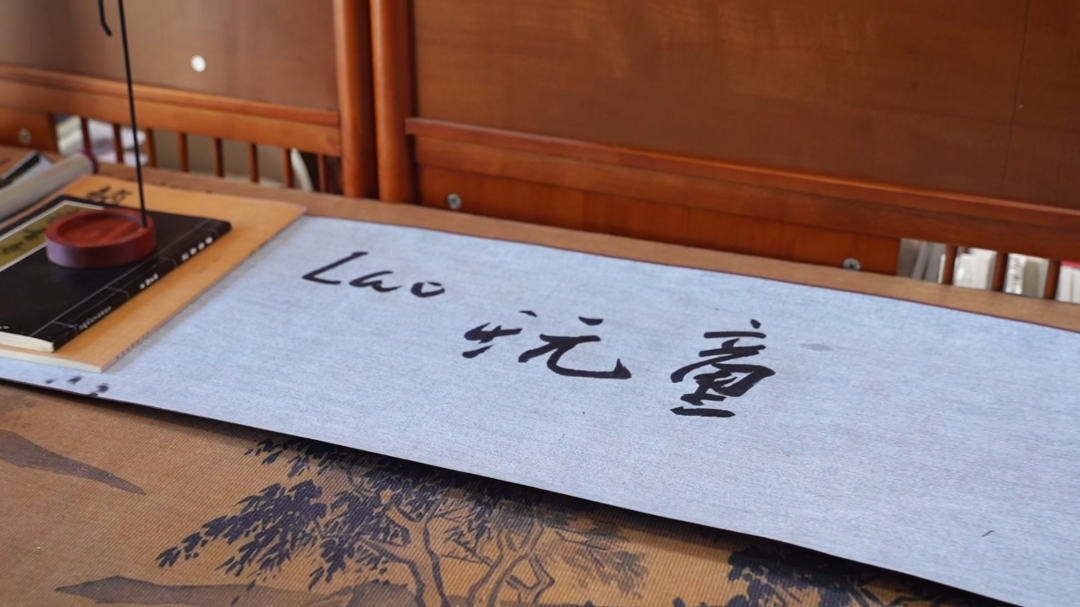 Lao 玩童